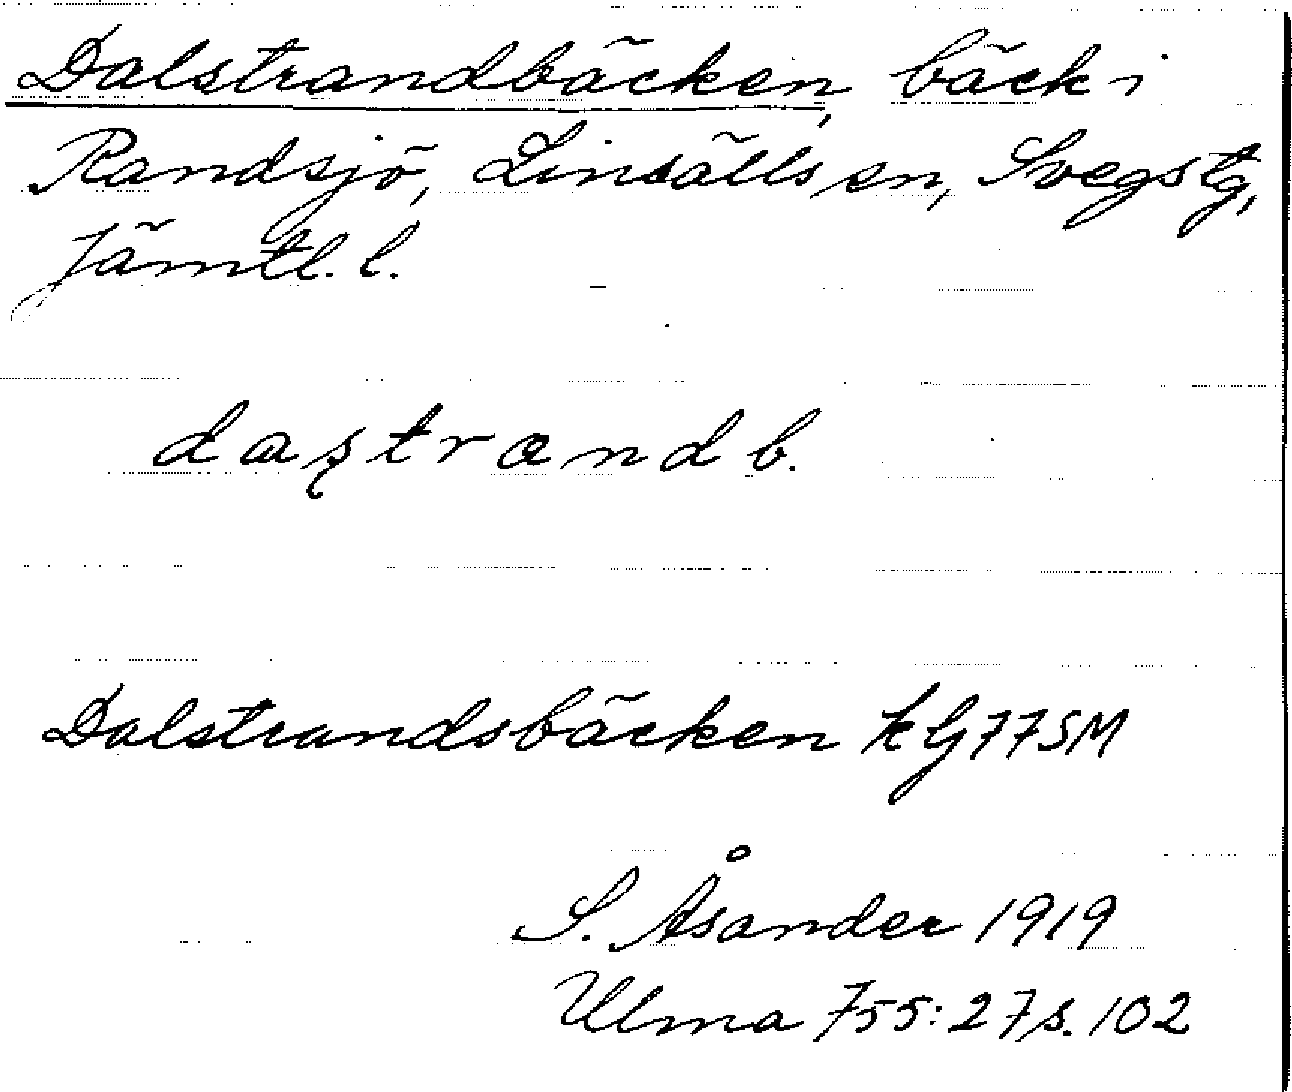 Dalstrandbäcken, bäck i
Randsjö, Linsälls sn, Svegs tg,
Jämtl. l.
daʂtrand b.
Dalstrandsbäcken kG77SM
S. Åsander 1919
Ulma 755:27 s. 102